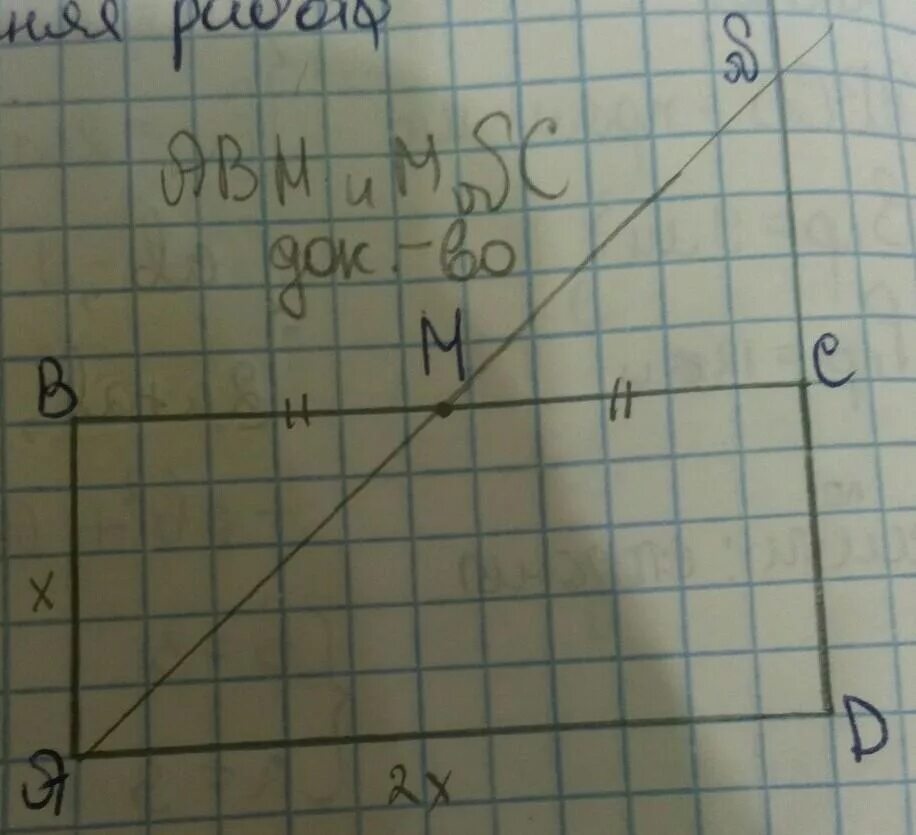 няя работа
S
ABM и MSC
док-во
M
B
C
x
A
D
2x